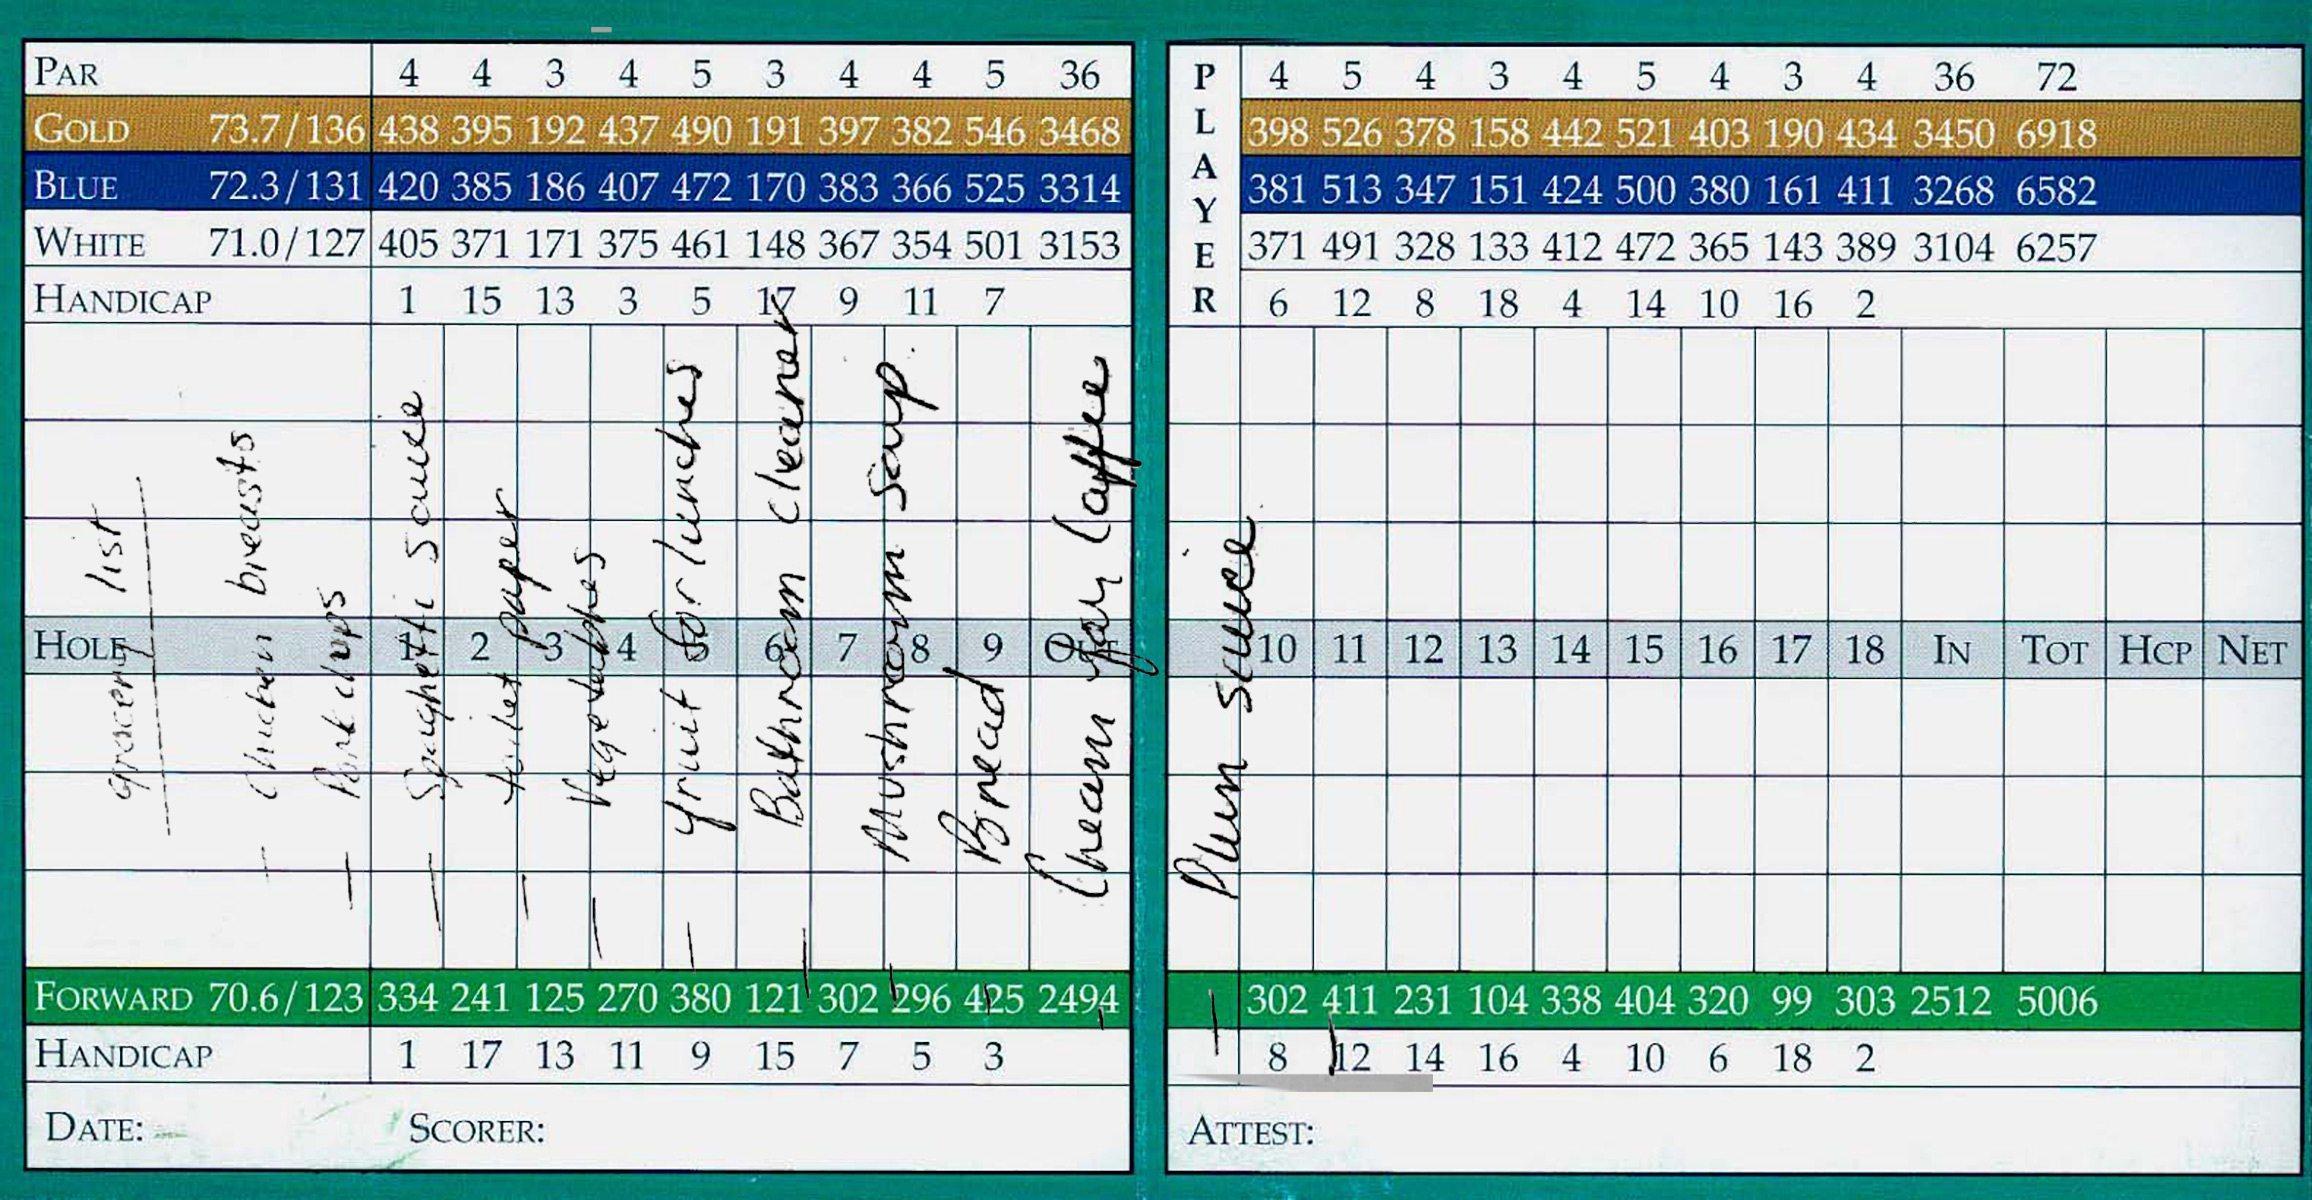 PAR 4 4 3 4 5 3 4 4 5 36 4 5 4 3 4 5 4 3 4 36 72
GOLD 73.7/136 438 395 192 437 490 191 397 382 546 3468 398 526 378 158 442 521 403 190 434 3450 6918
BLUE 72.3/131 420 385 186 407 472 170 383 366 525 3314 381 513 347 151 424 500 380 161 411 3268 6582
WHITE 71.0/127 405 371 171 375 461 148 367 354 501 3153 371 491 328 133 412 472 365 143 389 3104 6257
HANDICAP 1 15 13 3 5 17 9 11 7 6 12 8 18 4 14 10 16 2
PLAYER
grocery list
- Chicken breasts
- Pork chops
- Spaghetti sauce
- toilet paper
- Vegetables
- fruit for lunches
- Bathroom cleaner
- Mushroom soup.
- Bread
- Cream for Coffee
- Plum sauce
HOLE 1 2 3 4 5 6 7 8 9 10 11 12 13 14 15 16 17 18 IN TOT HCP NET
FORWARD 70.6/123 334 241 125 270 380 121 302 296 425 2494 302 411 231 104 338 404 320 99 303 2512 5006
HANDICAP 1 17 13 11 9 15 7 5 3 8 12 14 16 4 10 6 18 2
DATE: SCORER: ATTEST: